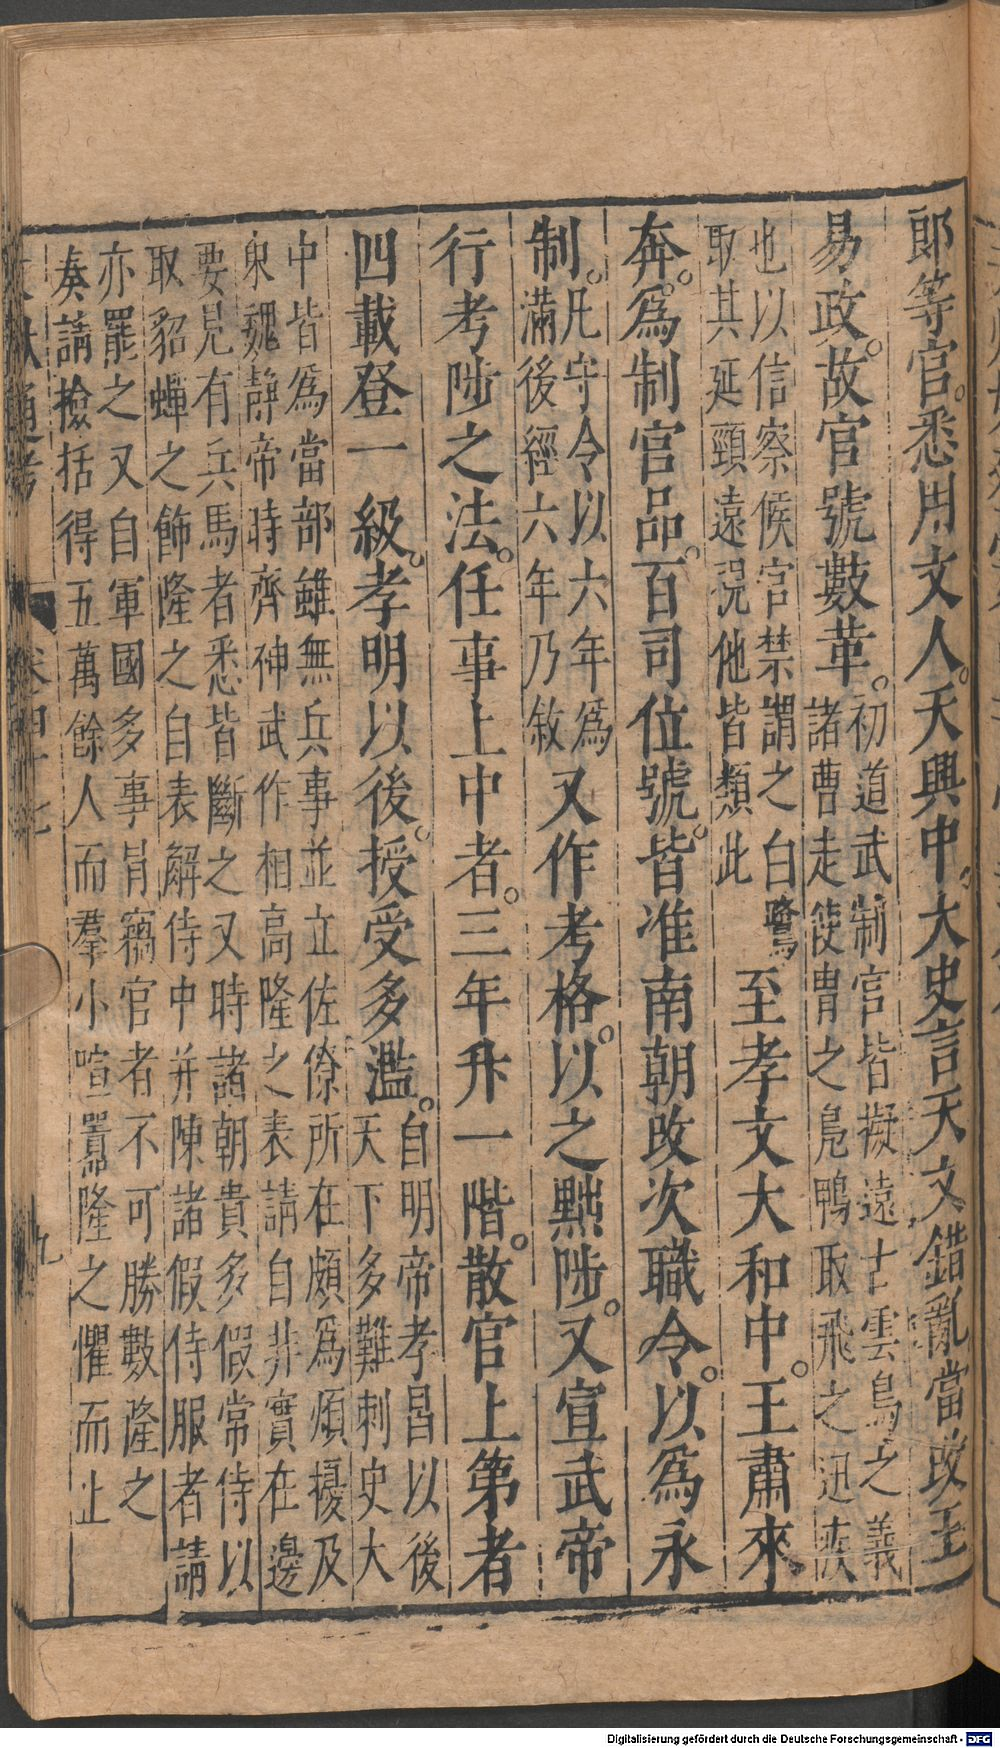 郎等官。悉用文人。天興中大史言天文錯亂當改王
易政。故官號數革。初道武制官皆擬遠古雲鳥之義
諸曹走使謂之鳧鴨取飛之迅疾
也以信察候官禁謂之白鷺
取其延頸遠況他皆類此
至孝文大和中。王肅來
奔。爲制官品。百司位號。皆准南朝改次職令。以爲永
制。凡守令以六年爲
滿後經六年乃敘
又作考格。以之黜陟。又宣武帝
行考陟之法。任事上中者。三年升一階。散官上第者
四載登一級。孝明以後。授受多濫。自明帝孝昌以後
天下多難刺史大
中皆爲當部雖無兵事並立佐僚所在頗爲煩擾及
東魏靜帝時齊神武作相高隆之表請自非實在邊
要見有兵馬者悉皆斷之又時諸朝貴多假常侍以
取貂蟬之飾隆之自表解侍中并陳諸假侍服者請
亦罷之又自軍國多事冐竊官者不可勝數隆之
奏請撿括得五萬餘人而羣小喧嚻隆之懼而止
通考
卷四十七
九
Digitalisierung gefördert durch die Deutsche Forschungsgemeinschaft - DFG